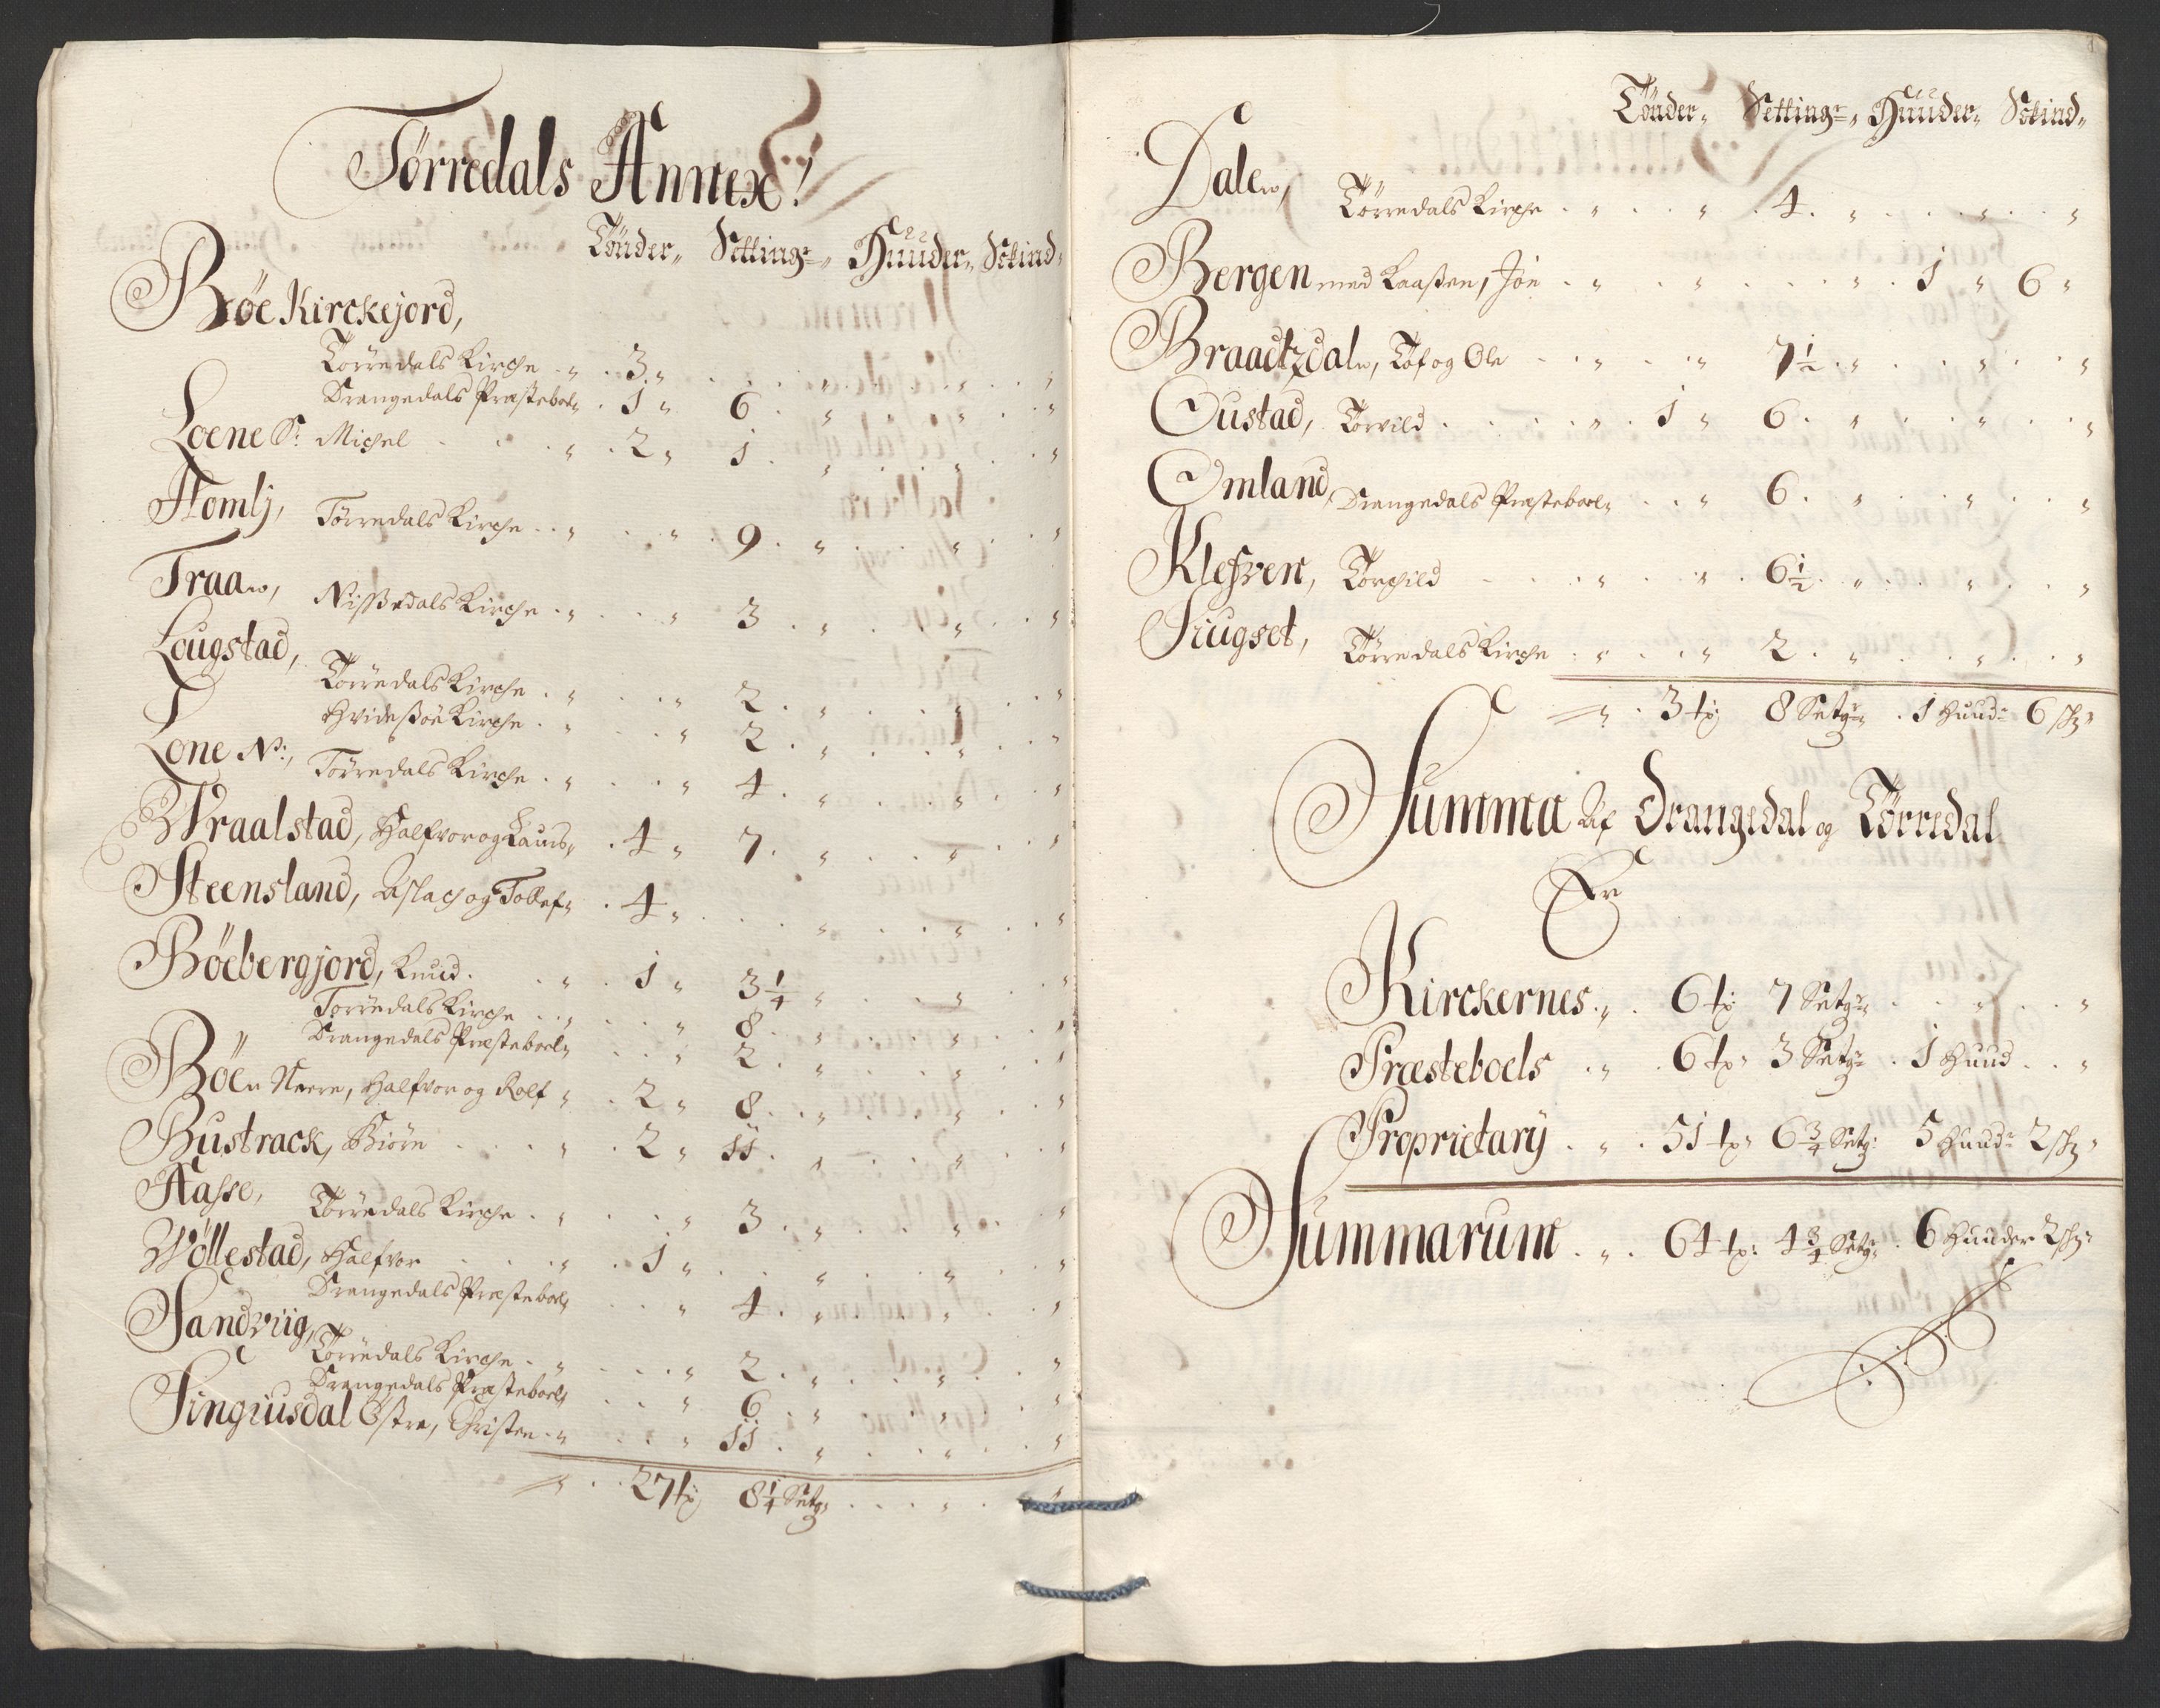 Tørredals Annex!
Tönder„ Setting:„ Huuder„ Skind„
Böe Kirckejord,
Törredals Kirche „ 3 „ „ „ „
Drangedals Præsteboel„ 1 „ 6 „ „ „
Loene S: Michel „ 2 „ 1 „ „ „
Homlj, Törredals Kirche „ „ 9 „ „ „
Traaw, Nissedals Kirche „ „ 3 „ „ „
Lougstad,
Törredals Kirche „ „ 2 „ „ „
Hvidessöe Kirche „ „ 2 „ „ „
Lone N:, Törredals Kirche „ „ 4 „ „ „
Wraalstad, Halfvor og Lauis„ 4 „ 7 „ „ „
Steensland, Aslach og Tollef„ 4 „ „ „ „
Böebergjord, Knud „ 1 „ 3 1/4 „ „ „
Törredals Kirche „ „ 8 „ „ „
Drangedals Præsteboel„ „ 2 „ „ „
Böen Neere, Halfvor og Rolf „ 2 „ 8 „ „ „
Bustrack, Biörn „ 2 „ 11 „ „ „
Aasse, Törredals Kirche „ „ 3 „ „ „
Wöllestad, Halfvor „ 1 „ „ „ „
Drangedals Præsteboel„ „ 4 „ „ „
Sandviig,
Törredals Kirche „ „ 2 „ „ „
Drangedals Præsteboel„ „ 6 „ „ „
Singiusdal Östre, Christen „ „ 11 „ „ „
„ 27 tp 8 1/4 Setg: „ „
Tönder„ Setting:„ Huuder„ Skind„
Dalew, Törredals Kirche „ „ 4 „ „ „
Bergen med Kaassen, Jön „ „ „ 1 „ 6 „
Braadtzdalw, Tof og Ole „ „ 7 1/2 „ „ „
Oustad, Torvild „ 1 „ 6 „ „ „
Omland, Drangedals Præsteboel„ „ 6 „ „ „
Klefven, Torchild „ „ 6 1/2 „ „ „
Siugset, Törredals Kirche „ „ 2 „ „ „
„ 3 tp 8 Setg: 1 Huud: 6 sk„
Summa Af Drangedal og Törredal
Er
Kirckernes „ 6 tp 7 Setg: „ „
Præsteboels „ 6 tp 3 Setg: 1 Huud „
Proprietary „ 51 tp 6 3/4 Setg: 5 Huud: 2 sk„
Summarum „ 64 tp: 4 3/4 Setg: 6 Huuder 2 sk„